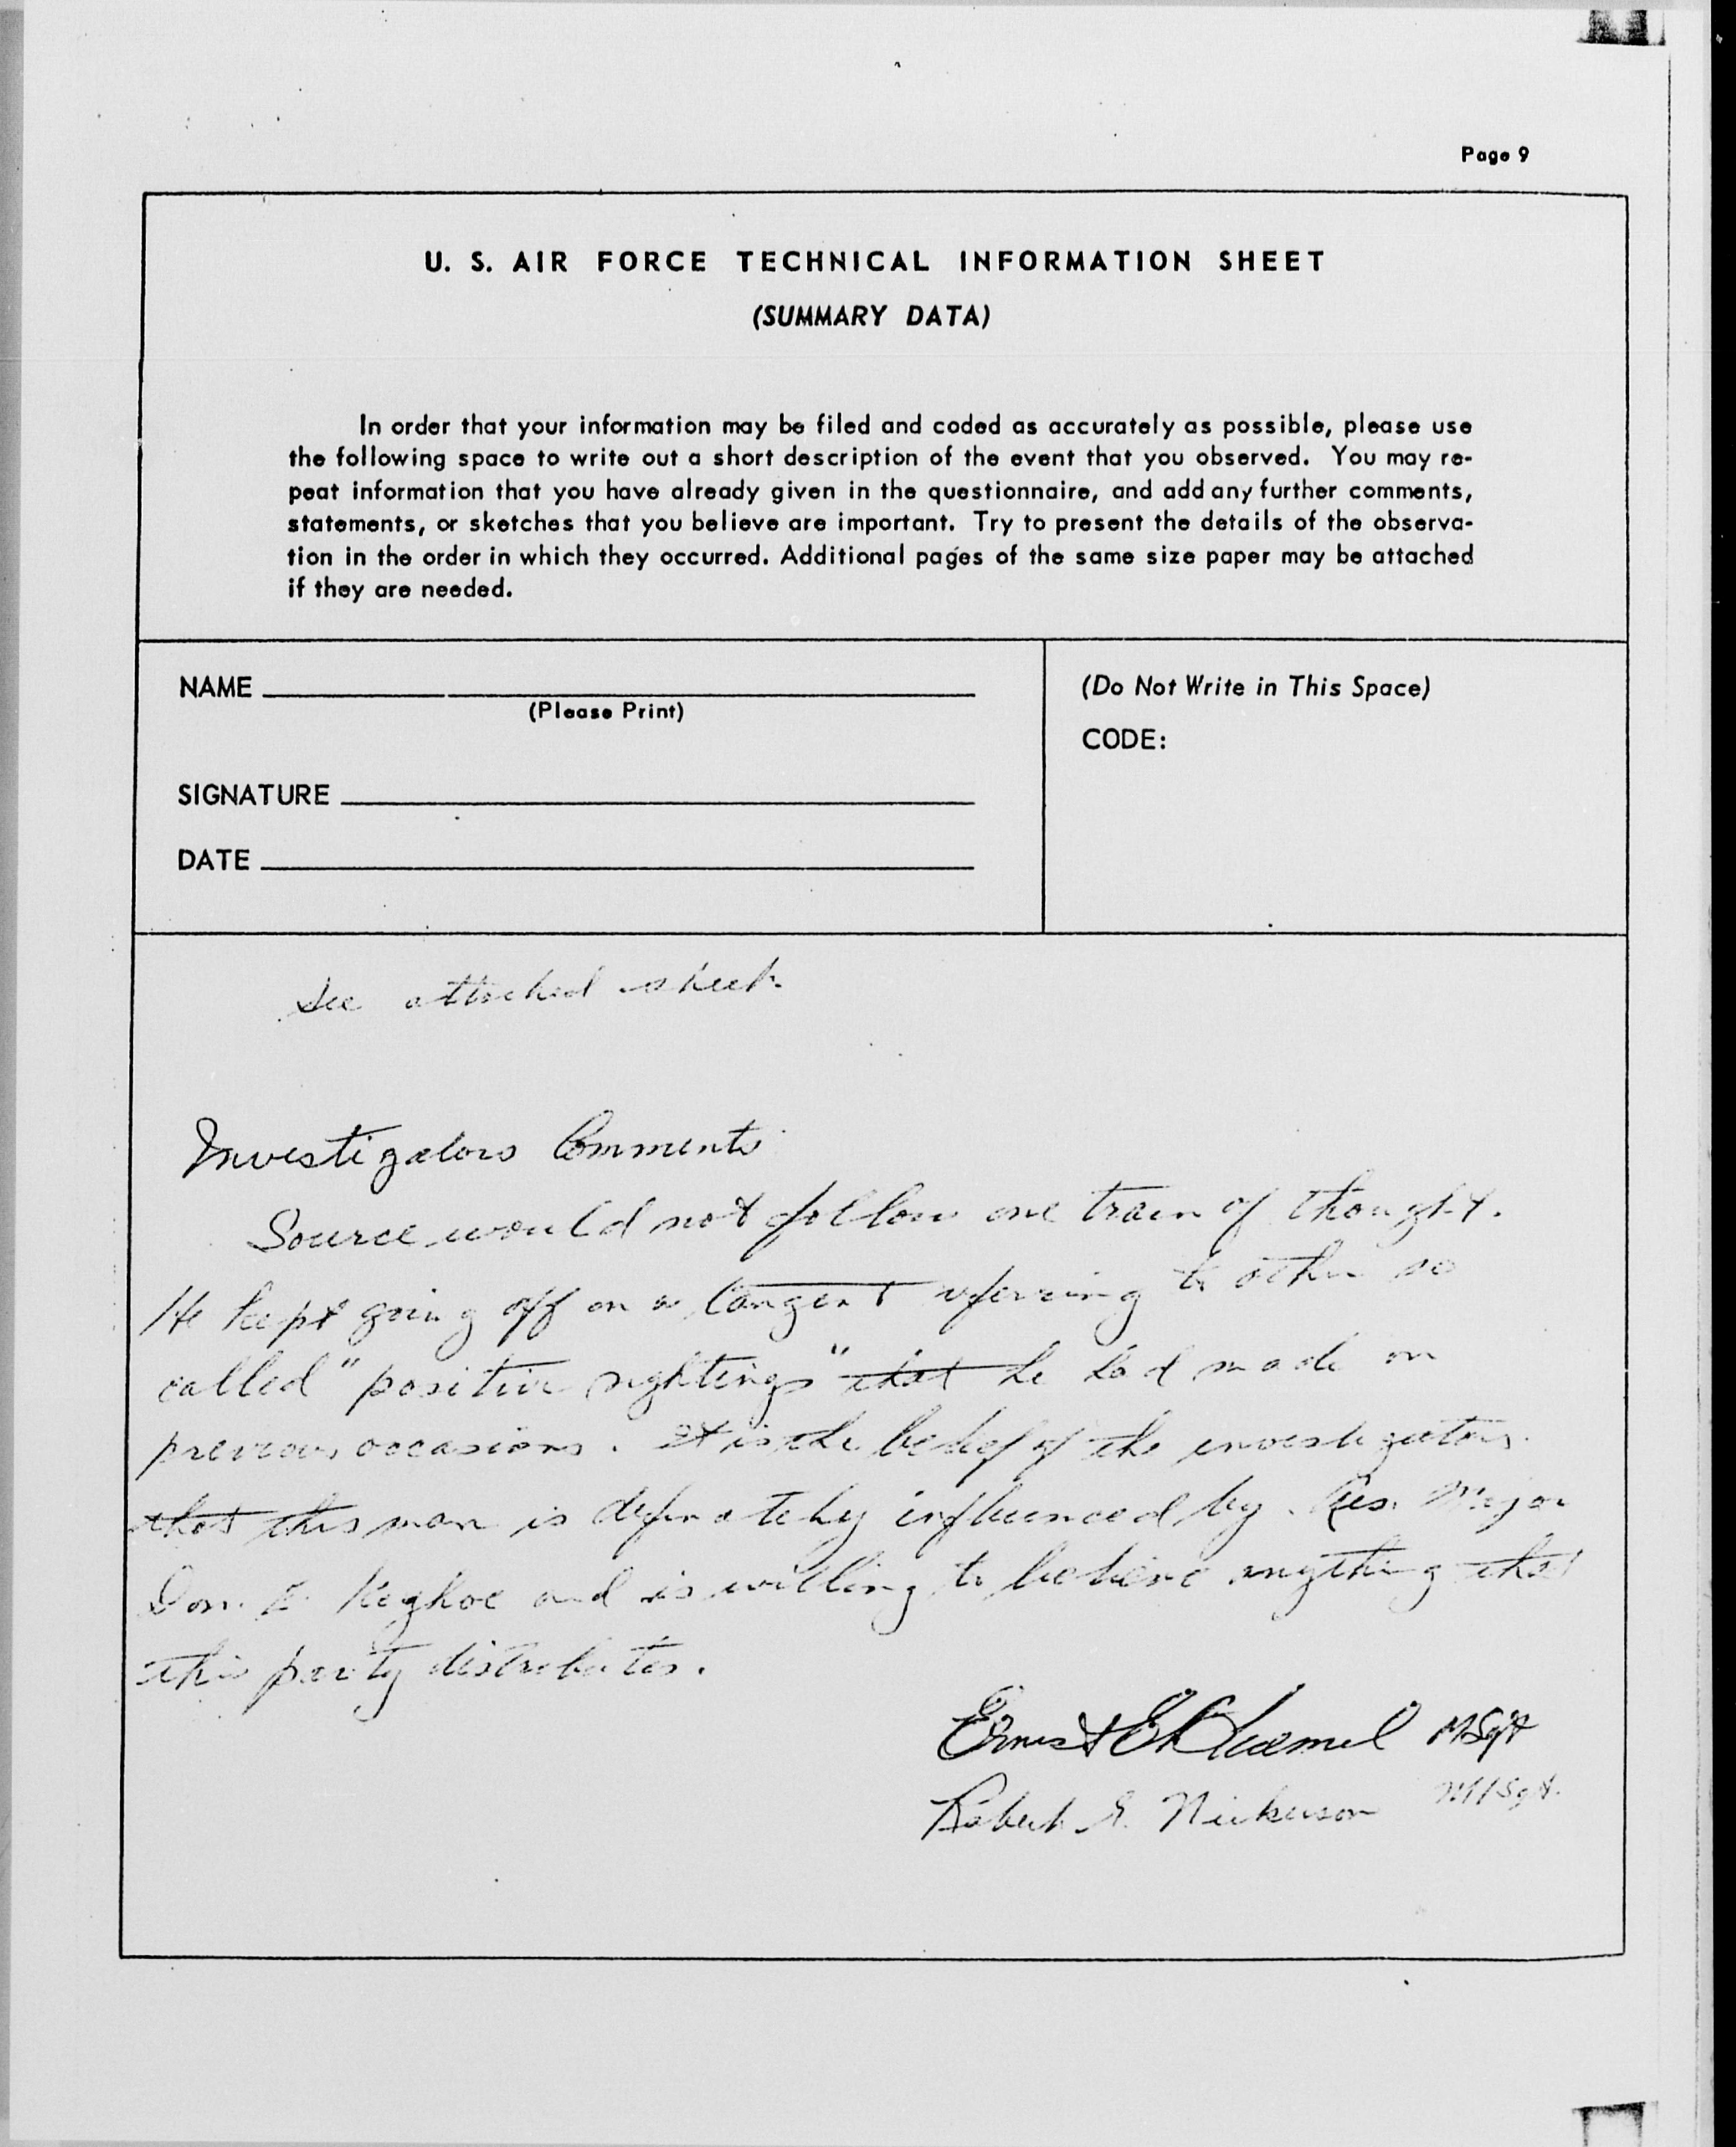 Page 9
U. S. AIR FORCE TECHNICAL INFORMATION SHEET
(SUMMARY DATA)
In order that your information may be filed and coded as accurately as possible, please use
the following space to write out a short description of the event that you observed. You may re-
peat information that you have already given in the questionnaire, and add any further comments,
statements, or sketches that you believe are important. Try to present the details of the observa-
tion in the order in which they occurred. Additional pages of the same size paper may be attached
if they are needed.
NAME
(Please Print)
SIGNATURE
DATE
(Do Not Write in This Space)
CODE:
See attached sheet.
Investigators Comments
Source would not follow one train of thought.
He kept going off on a tangent referring to other so
called "positive sightings" that he had made on
previous occasions. It is the belief of the investigators
that this man is definately influenced by Res. Major
Don. E. Keyhoe and is willing to believe anything that
this party distributes.
Ernest MSgt
Robert E. Nickerson M/Sgt.